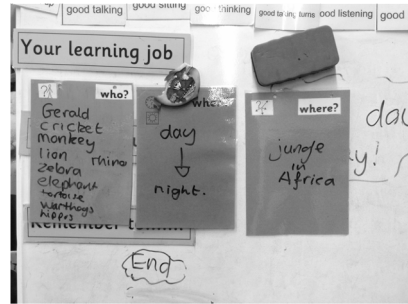 good talking
good sitting
good thinking
good taking turns
ood listening
good
Your learning job
who?
Gerald
cricket
monkey
lion
rhino
zebra
elephant
tortoise
warthogs
hippos
whe
day
night.
where?
jungle
in
Africa
day
y!
Remember t
End